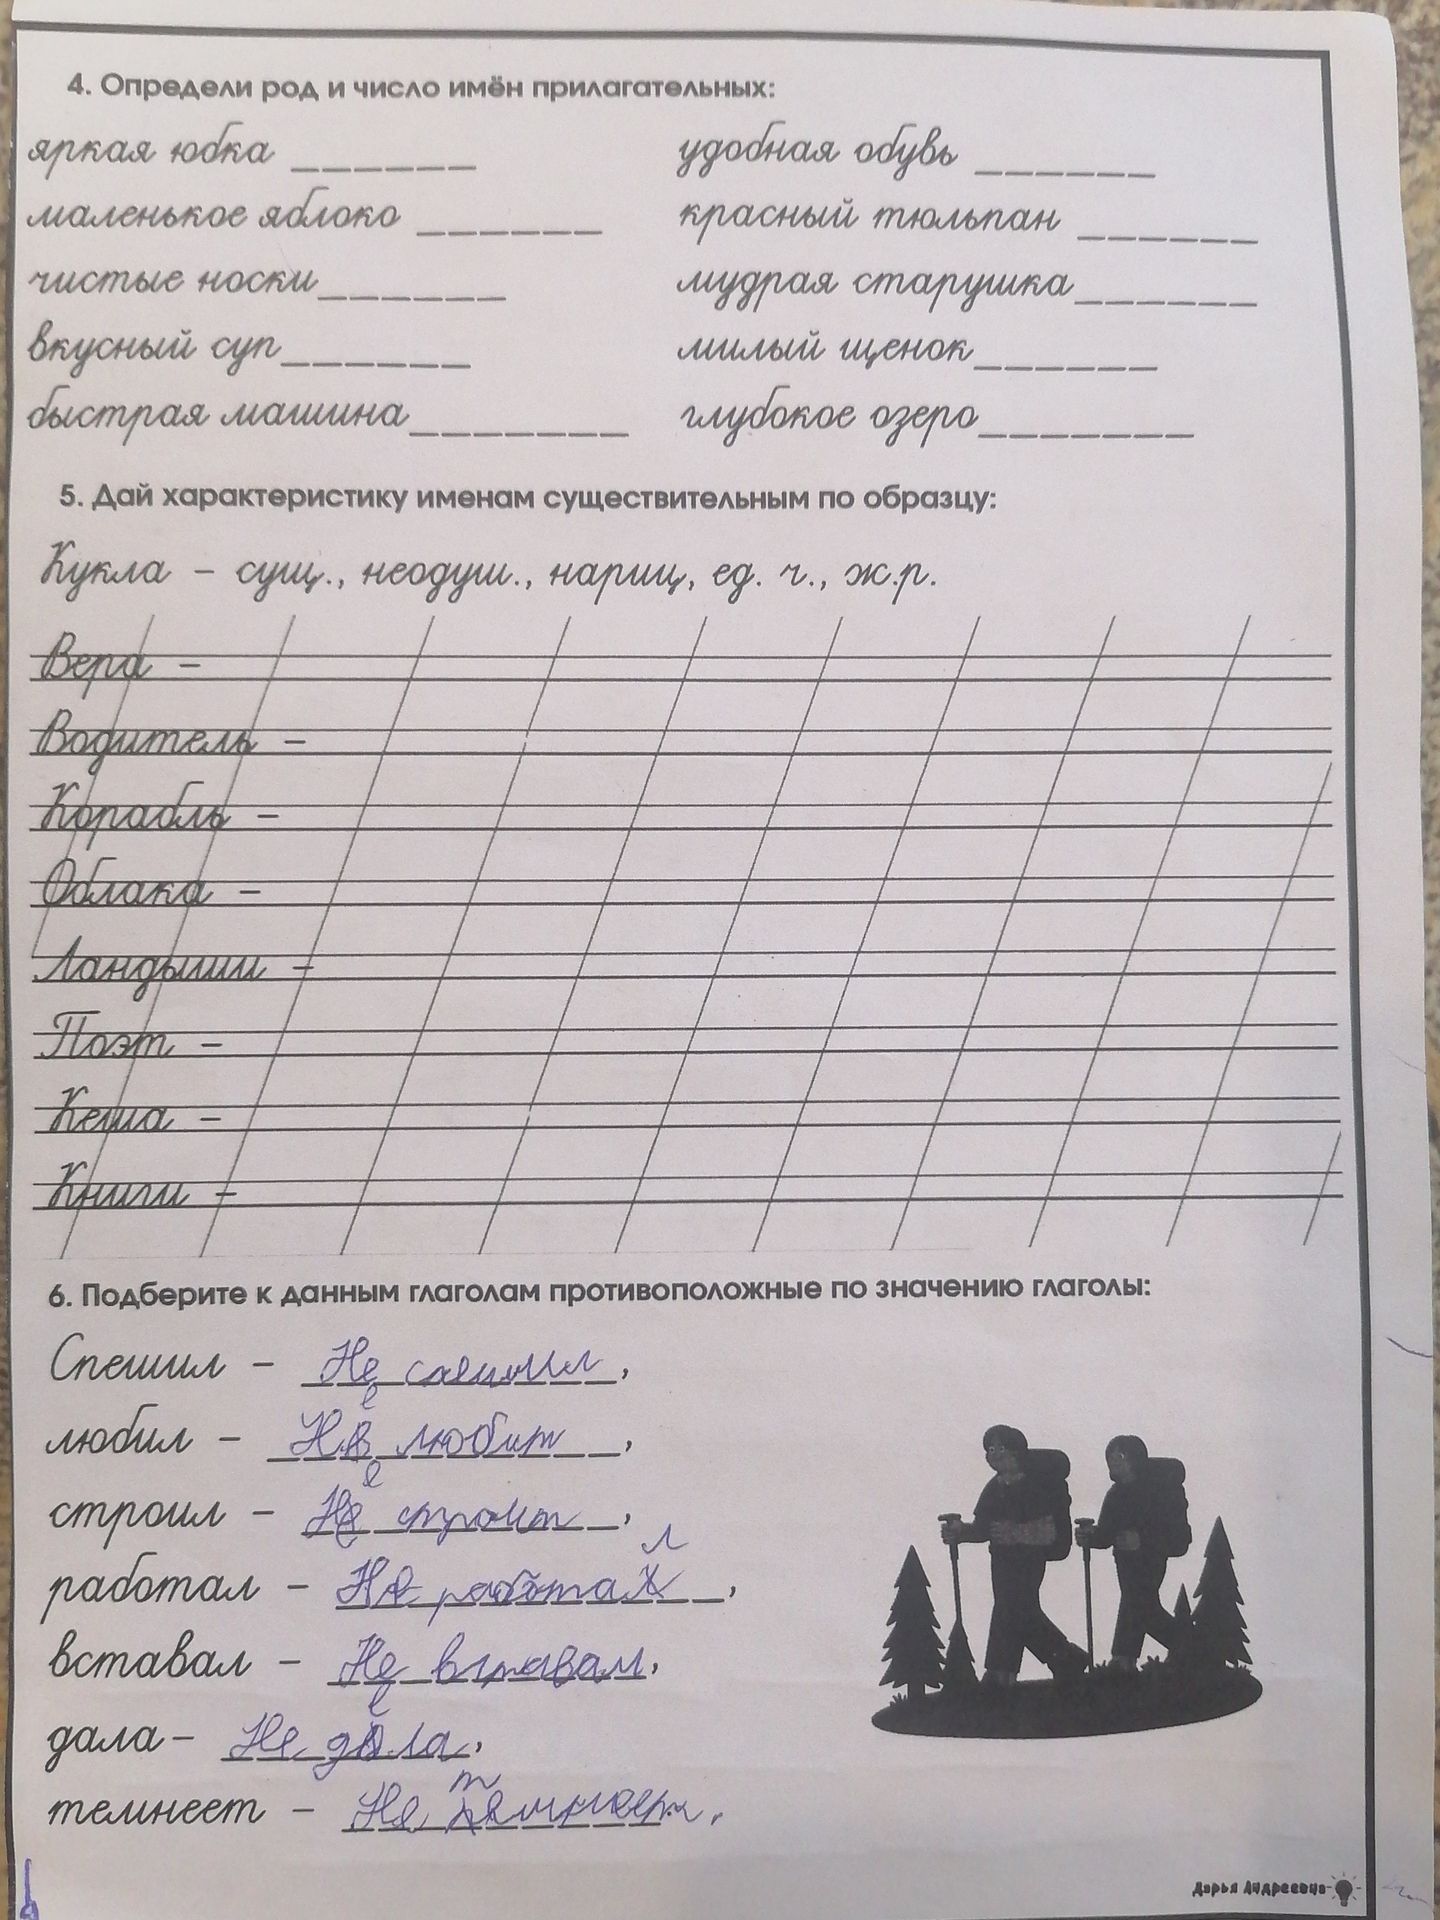 4. Определи род и число имён прилагательных:
яркая юбка ______ удобная обувь ______
маленькое яблоко ______ красный тюльпан ______
чистые носки ______ мудрая старушка ______
вкусный суп ______ милый щенок ______
быстрая машина _______ глубокое озеро _______
5. Дай характеристику именам существительным по образцу:
Кукла – сущ., неодуш., нариц, ед. ч., ж.р.
Вера –
Водитель –
Корабль –
Облака –
Ландыши –
Поэт –
Кеша –
Книги –
6. Подберите к данным глаголам противоположные по значению глаголы:
Спешил – Не спешил,
любил – Не любит,
строил – Не строит,
работал – Не работал,
вставал – Не вставал,
дала – Не дела,
темнеет – Не темнеет.
Дарья Андреевна